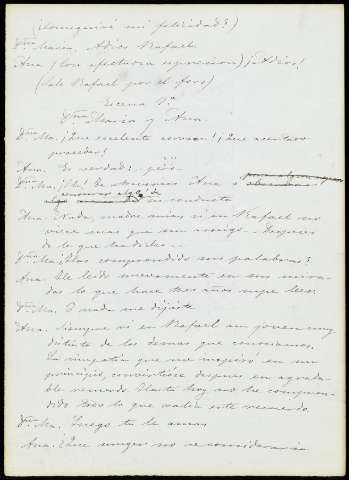 (¿Conseguiré mi felicidad?)
Dña María. Adios Rafael.
Ana (Con afectuosa expresion) ¡Adios!
(Sale Rafael por el foro)
Escena 7ª
Dña María y Ana.
Dña Ma. ¡Que excelente corazon! ¡Que acertado
proceder!
Ana. Es verdad; pero
Dña Ma. ¡Ah! Te Ana
en conducta
Ana. Nada, madre mia; si en Rafael no
viese mas que un amigo - despues
de lo que ha dicho...
Dña Ma. ¿Has comprendido sus palabras?
Ana. He leido nuevamente en sus mira-
das lo que hace tres años supe leer.
Dña Ma. Y nada me dijiste
Ana. Siempre vi en Rafael un joven muy
distinto de los demas que conociamos.
La simpatia que me inspiró en un
principio, convirtióse despues en agrada-
ble recuerdo. Hasta hoy no he compren-
dido todo lo que valia este recuerdo.
Dña Ma. Luego tu le amas
Ana. ¿Que muger no se consideraria